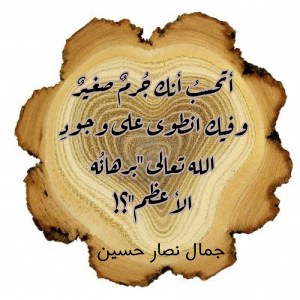 أتحسبُ أنك جُرمٌ صغيرٌ
وفيك انطوى على وجودِ
الله تعالى "برهانُه
الأعظم"؟!
جمال نصار حسين